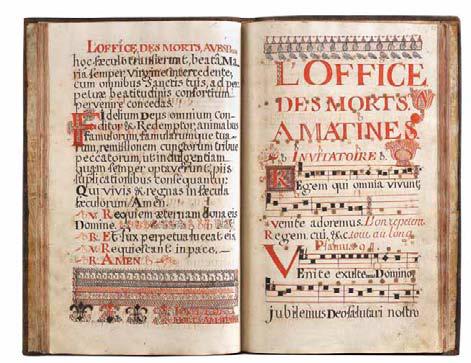 L'OFFICE, DES MORTS, A VESP
hoc sæculo transierunt, beata Ma,
ria semper Virgine intercedente,
cum omnibus Sanctis tuis, ad per
petuæ beatitudinis consortium
pervenire concedas.
Fidelium Deus omnium con
ditor & Redemptor, animabus
famulorum, famularumque tua,
rum, remissionem cunctorum tribue
peccatorum, ut indulgentiam,
quam semper optaverunt, piis
supplicationibus consequantur:
Qui vivis & regnas in sæcula
sæculorum Amen.
v. Requiem æternam dona eis
Domine.
R. Et lux perpetua luceat eis.
v. Requiescant in pace,
R. AMEN.
L'OFFICE
DES MORTS,
A MATINES
INVITATOIRE
Regem qui omnia vivunt,
venite adoremus. L'on repetera
Regem cui, &c. tout au long.
Psalmus 94
Venite exulte... Domino
Jubilemus Deo salutari nostro